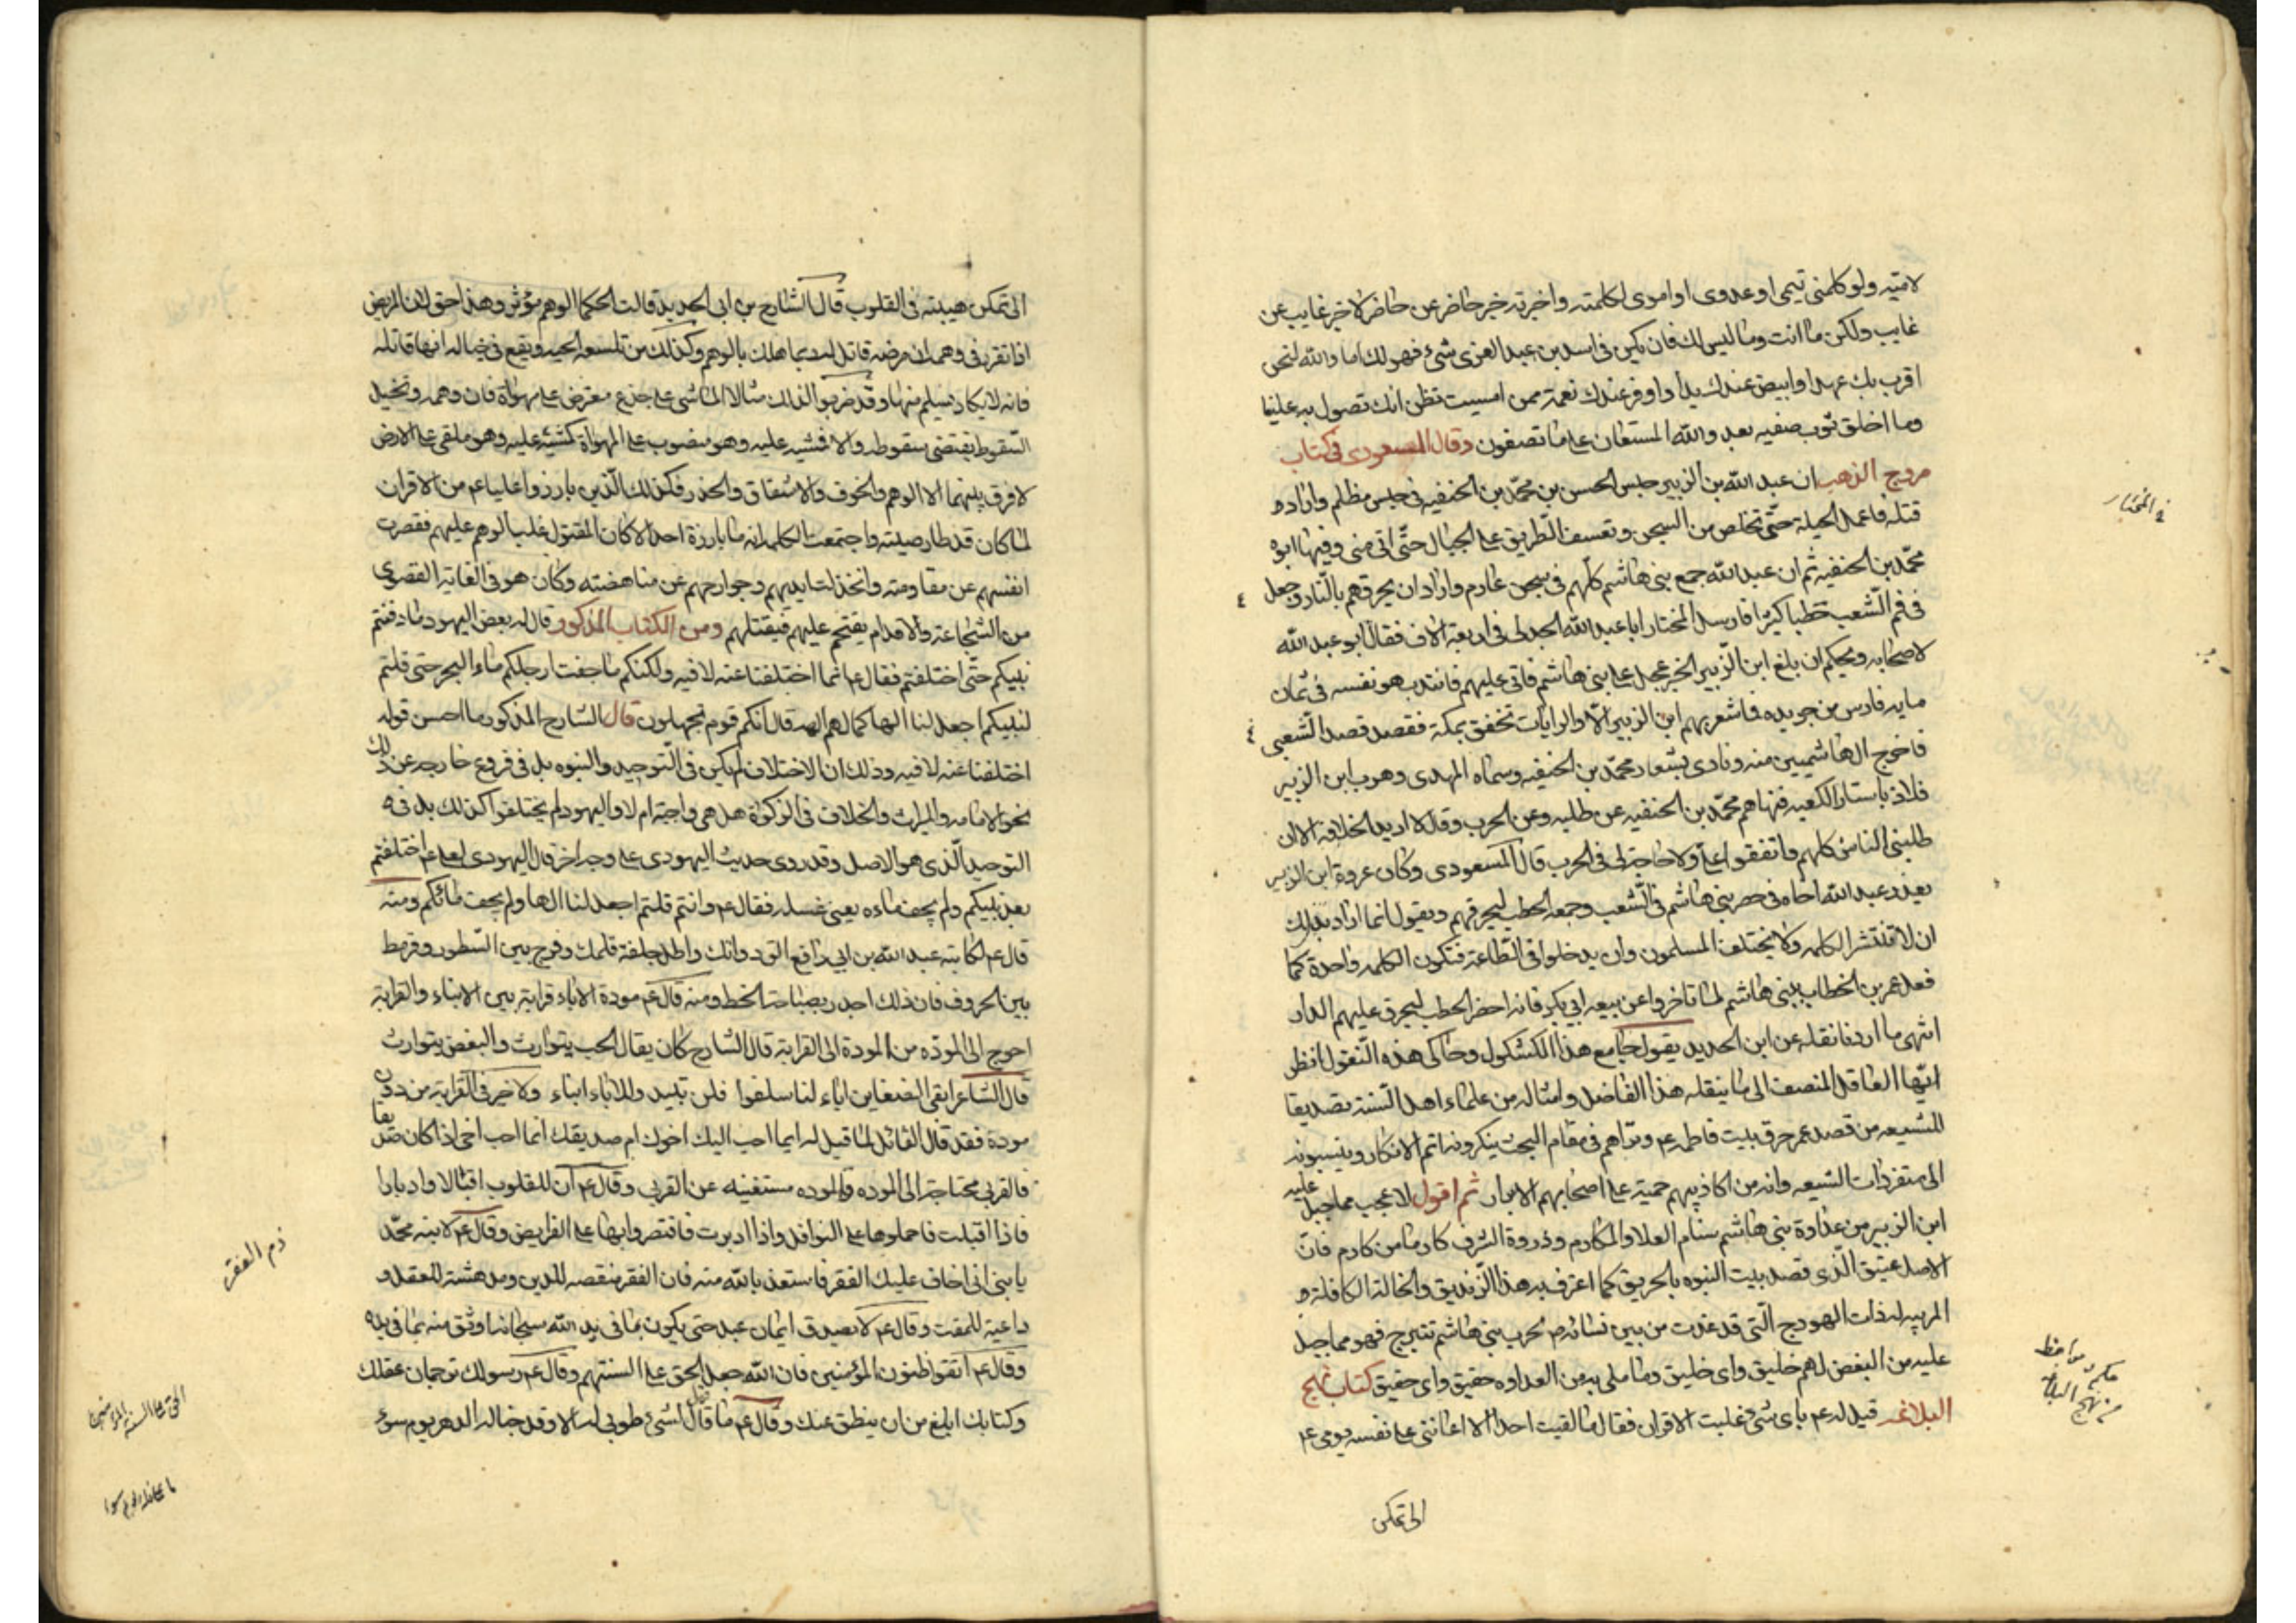 لامتيه ولو كلمنى تيمى او عدوى او اموى لكلمته واخبرته خبر حاضر عن حاضر لا خبر غايب عن
غايب ولكن ما انت وما ليس لك فان يكن فى اسد بن عبد العزى شئ فهو لك اما والله لنحن
اقرب بك عهدا وابيض عندك يدا واوفر عندك نعمة ممن امسيت تظن انك تصول به علينا
وما اخلق ثوب صفيه بعد والله المستعان على ما تصفون وقال المسعودى فى كتاب
مروج الذهب ان عبد الله بن الزبير حبس الحسن بن محمد بن الحنفيه فى حبس مظلم واراد
قتله فاعمل الحيلة حتى تخلص من السجن وتعسف الطريق على الجبال حتى اتى منى وفيها ابوه
محمد بن الحنفيه ثم ان عبد الله جمع بنى هاشم كلهم فى سجن عارم واراد ان يحرقهم بالنار وجعل
فى فم الشعب حطبا كثيرا فارسل المختار ابا عبد الله الجدلى فى اربعة الاف فقال ابو عبد الله
لاصحابه ويحكم ان بلغ ابن الزبير الخبر عجل على بنى هاشم فاتى عليهم فانتدب هو نفسه فى ثمان
مايه فارس جريده فما شعر بهم ابن الزبير الا والرايات تخفق بمكة فقصد قصد الشعب
فاخرج الهاشميين منه ونادى بشعار محمد بن الحنفيه وسماه المهدى وهرب ابن الزبير
فلاذ باستار الكعبه فنهاهم محمد بن الحنفيه عن طلبه وعن الحرب وقال لا اريد الخلافة الا ان
طلبنى الناس كلهم واتفقوا على ولا حاجة لى فى الحرب قال المسعودى وكان عروة ابن الزبير
يعذر عبد الله اخاه فى حصر بنى هاشم فى الشعب وجمعه الحطب ليحرقهم ويقول انما اراد بذلك
ان لا تنتشر الكلمه ولا يختلف المسلمون وان يدخلوا فى الطاعة فتكون الكلمه واحدة كما
فعل عمر بن الخطاب ببنى هاشم لما تاخروا عن بيعه ابى بكر فانه احضر الحطب ليحرق عليهم الدار
انتهى ما اردنا نقله عن ابن الحديد يقول جامع هذا الكشكول وحاكى هذه النقول انظر
ايها العاقل المنصف الى ما ينقله هذا الفاضل وامثاله من علماء اهل السنة تصديقا
للشيعه من قصد عمر حرق بيت فاطمه ع وتراهم فى مقام البحث ينكرونه اتم الانكار وينسبونه
الى متفردات الشيعه وانه من اكاذيبهم حمية على اصحابهم الابرار ثم اقول لا عجب مما جبل عليه
ابن الزبير من عداوة بنى هاشم سنام العلا والمكارم وذروة الشرف كارما من كارم فان
الاصل عتيق الذى قصد بيت النبوه بالحريق كما اعترف به هذا الزنديق والخالة الكافلة و
المربيه له ذات الهودج التى قد غدت من بين نسائه ص لحرب بنى هاشم تتبرج فهو مما جبل
عليه من البغض لهم خليق واى خليق وما ملى به من العداوه حقيق واى حقيق كتاب نهج
البلاغه قيل له ع باى شئ غلبت الاقران فقال ما لقيت احدا الا اعاننى على نفسه يومى ع
الى تمكن
فى المختار
حكم ومواعظ
من نهج البلاغه
الى تمكن هيبته فى القلوب قال الشارح بن ابى الحديد قالت الحكما الوهم مؤثر وهذا حق لان المريض
اذا تقرر فى وهمه ان مرضه قاتل له ربما هلك بالوهم وكذلك من تلسعه الحيه ويقع فى خياله انها قاتله
فانه لا يكاد يسلم منها وقد ضربوا لذلك مثالا الماشى على جذع معترض على مهواة فان وهمه وتخيل
السقوط يقتضى سقوطه والا فمشيه عليه وهو منصوب على المهواة كمشيه عليه وهو ملقى على الارض
لا فرق بينهما الا الوهم والخوف والاشفاق والحذر فكذلك الذين بارزوا عليا ع من الاقران
لما كان قد طار صيته واجتمعت الكلمه انه ما بارزه احد الا كان المقتول غلب الوهم عليهم فقصرت
انفسهم عن مقاومته وانخذلت ايديهم وجوارحهم عن مناهضته وكان هو فى الغاية القصوى
من الشجاعة والاقدام يقتحم عليهم فيقتلهم ومن الكتاب المذكور قال له بعض اليهود ما دفنتم
نبيكم حتى اختلفتم فقال ع انما اختلفنا عنه لا فيه ولكنكم ما جفت ارجلكم من ماء البحر حتى قلتم
لنبيكم اجعل لنا الها كما لهم الهه قال انكم قوم تجهلون قال الشارح المذكور ما احسن قوله
اختلفنا عنه لا فيه وذلك ان الاختلاف لم يكن فى التوحيد والنبوه بل فى فروع خارجه عن ذلك
نحو الامامه والميراث والخلاف فى الزكوة هل هى واجبة ام لا واليهود لم يختلفوا كذلك بل فى
التوحيد الذى هو الاصل وقد روى حديث اليهودى على وجه اخر قال اليهودى لعلى ع اختلفتم
بعد نبيكم ولم يجف ماءه يعنى غسله فقال ع وانتم قلتم اجعل لنا الها ولم يجف ماؤكم ومنه
قال ع لكاتبه عبد الله بن ابى رافع الق دواتك واطل جلفة قلمك وفرج بين السطور وقرمط
بين الحروف فان ذلك اجدر بصباحة الخط ومنه قال ع مودة الاباء قرابة بين الابناء والقرابة
احوج الى المودة من المودة الى القرابة قال الشارح كان يقال الحب يتوارث والبغض يتوارث
قال الشاعر ابقى الضغاين اباء لنا سلفوا فلن تبيد وللاباء ابناء ولا خير فى القرابة من دون
مودة فقد قال القائل لما قيل له ايما احب اليك اخوك ام صديقك انما احب اخى اذا كان صديقا
فالقربى محتاجة الى الموده والموده مستغنيه عن القربى وقال ع ان للقلوب اقبالا وادبارا
فاذا اقبلت فاحملوها على النوافل واذا ادبرت فاقتصروا بها على الفرايض وقال ع لابنه محمد
يا بنى انى اخاف عليك الفقر فاستعذ بالله منه فان الفقر منقصه للدين ومدهشة للعقل و
داعية للمقت وقال ع لا يصدق ايمان عبد حتى يكون بما فى يد الله سبحانه اوثق منه بما فى يده
وقال ع اتقوا ظنون المؤمنين فان الله جعل الحق على السنتهم وقال ع رسولك ترجمان عقلك
وكتابك ابلغ من ان ينطق عنك وقال ع ما قال الناس لشئ طوبى له الا وقد خبا له الدهر يوم سوء
ذم الفقر
الحق على السنة المؤمنين